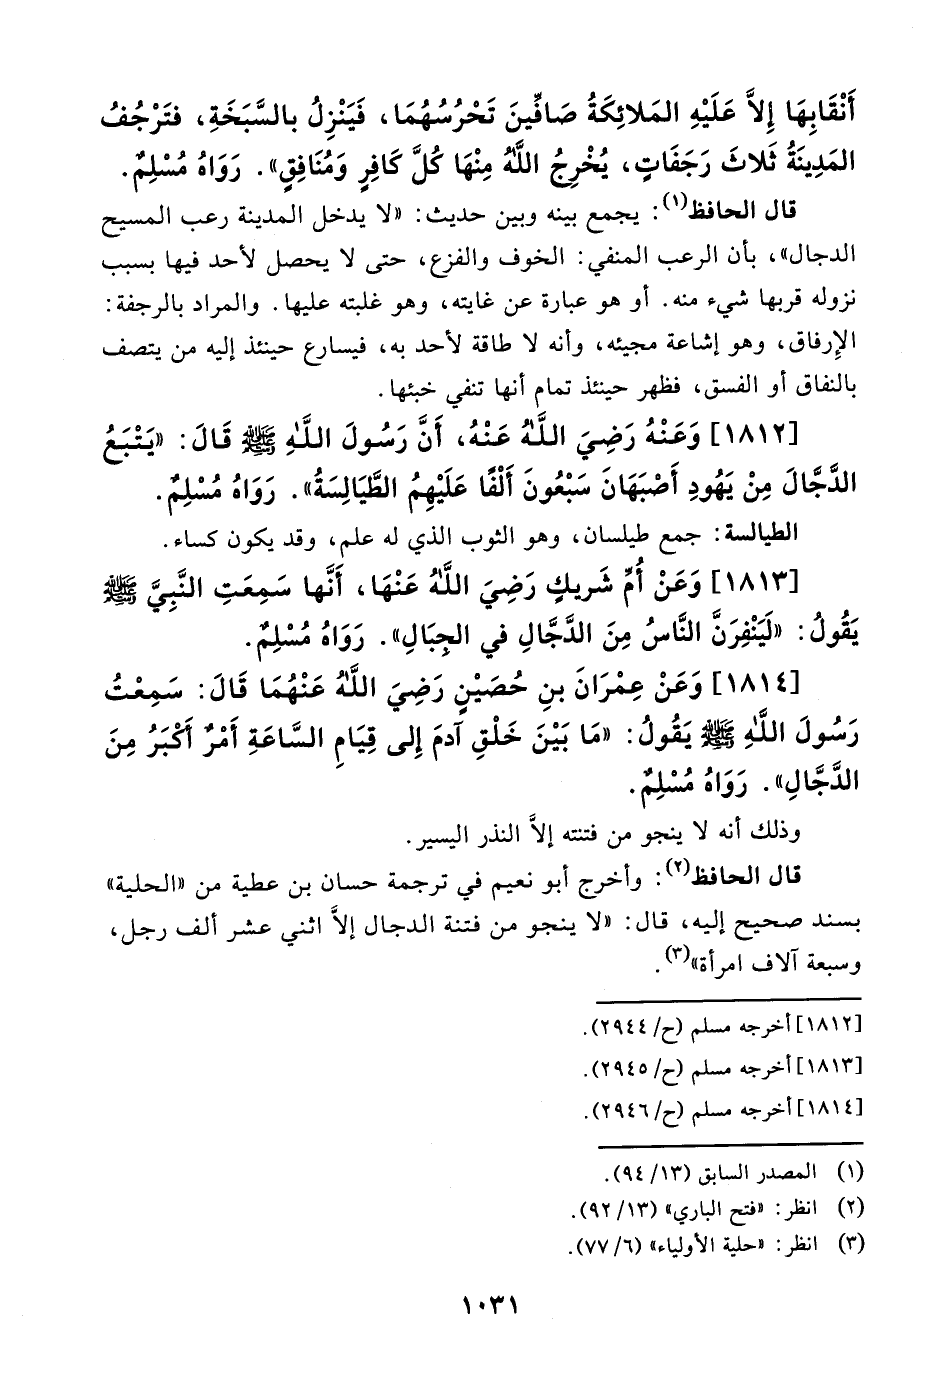 أَنْقَابِهَا إِلاَّ عَلَيْهِ المَلائِكَةُ صَافِّينَ تَحْرُسُهُمَا، فَيَنْزِلُ بالسَّبَخَةِ، فتَرْجُفُ
المَدِينَةُ ثَلاثَ رَجَفَاتٍ، يُخْرِجُ اللَّهُ مِنْهَا كُلَّ كَافِرٍ وَمُنَافِقٍ». رَوَاهُ مُسْلِمٌ.
قال الحافظ(١): يجمع بينه وبين حديث: «لا يدخل المدينة رعب المسيح
الدجال»، بأن الرعب المنفي: الخوف والفزع، حتى لا يحصل لأحد فيها بسبب
نزوله قربها شيء منه. أو هو عبارة عن غايته، وهو غلبته عليها. والمراد بالرجفة:
الإرفاق، وهو إشاعة مجيئه، وأنه لا طاقة لأحد به، فيسارع حينئذ إليه من يتصف
بالنفاق أو الفسق، فظهر حينئذ تمام أنها تنفي خبثها.
[١٨١٢] وَعَنْهُ رَضِيَ اللَّهُ عَنْهُ، أَنَّ رَسُولَ اللَّهِ ﷺ قَالَ: «يَتْبَعُ
الدَّجَّالَ مِنْ يَهُودِ أَصْبَهَانَ سَبْعُونَ أَلْفًا عَلَيْهِمُ الطَّيَالِسَةُ». رَوَاهُ مُسْلِمٌ.
الطيالسة: جمع طيلسان، وهو الثوب الذي له علم، وقد يكون كساء.
[١٨١٣] وَعَنْ أُمِّ شَرِيكٍ رَضِيَ اللَّهُ عَنْهَا، أَنَّها سَمِعَتِ النَّبِيَّ ﷺ
يَقُولُ: «لَيَنْفِرَنَّ النَّاسُ مِنَ الدَّجَّالِ في الجِبَالِ». رَوَاهُ مُسْلِمٌ.
[١٨١٤] وَعَنْ عِمْرَانَ بنِ حُصَيْنٍ رَضِيَ اللَّهُ عَنْهُمَا قَالَ: سَمِعْتُ
رَسُولَ اللَّهِ ﷺ يَقُولُ: «مَا بَيْنَ خَلْقِ آدمَ إِلى قِيَامِ السَّاعَةِ أَمْرٌ أَكْبَرُ مِنَ
الدَّجَّالِ». رَوَاهُ مُسْلِمٌ.
وذلك أنه لا ينجو من فتنته إلاَّ النذر اليسير.
قال الحافظ(٢): وأخرج أبو نعيم في ترجمة حسان بن عطية من «الحلية»
بسند صحيح إليه، قال: «لا ينجو من فتنة الدجال إلاَّ اثني عشر ألف رجل،
وسبعة آلاف امرأة»(٣).
[١٨١٢] أخرجه مسلم (ح/ ٢٩٤٤).
[١٨١٣] أخرجه مسلم (ح/ ٢٩٤٥).
[١٨١٤] أخرجه مسلم (ح/ ٢٩٤٦).
(١) المصدر السابق (١٣/ ٩٤).
(٢) انظر: «فتح الباري» (١٣/ ٩٢).
(٣) انظر: «حلية الأولياء» (٦/ ٧٧).
١٠٣١